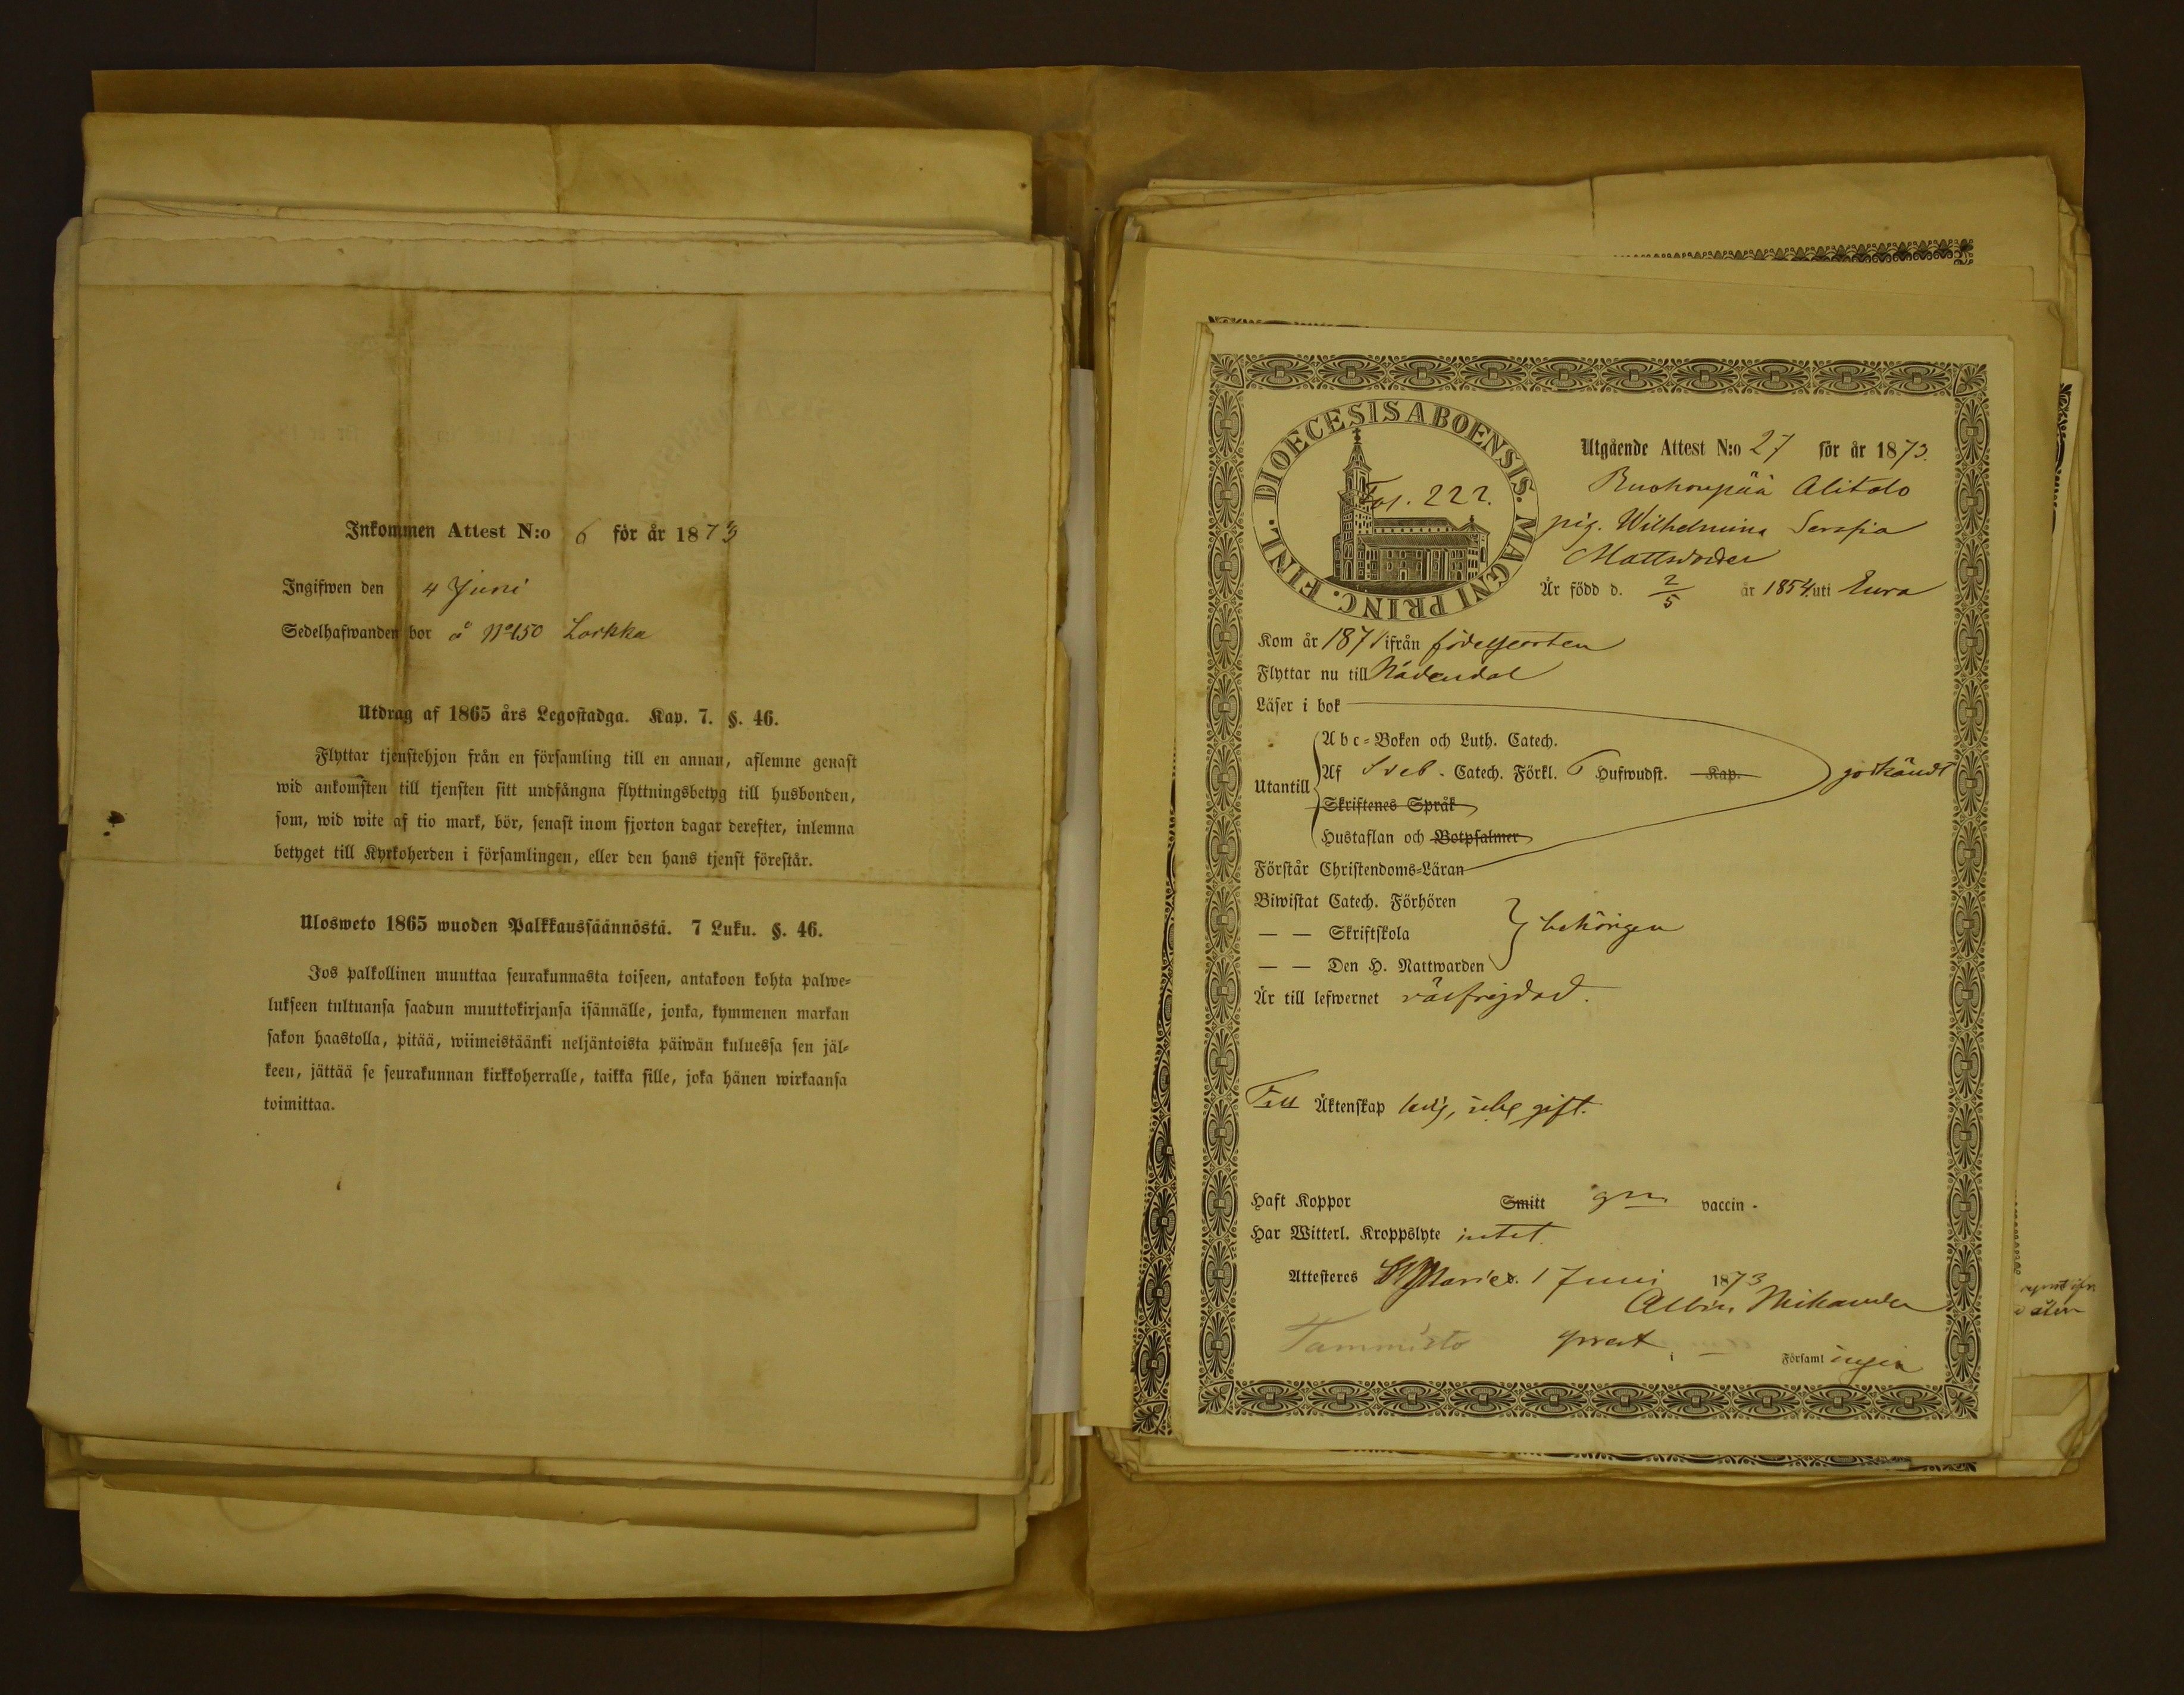 Inkommen Attest N:o 6 för år 1873
Ingifwen den 4 Juni
Sedelhafwanden bor å No 150 Lorkka
Utdrag af 1865 års Legostadga. Kap. 7. §. 46.
Flyttar tjenstehjon från en församling till en annan, aflemne genast
wid ankomsten till tjensten sitt undfångna flyttningsbetyg till husbonden,
som, wid wite af tio mark, bör, senast inom fjorton dagar derefter, inlemna
betyget till Kyrkoherden i församlingen, eller den hans tjenst förestår.
Ulosweto 1865 wuoden Palkkaussäännöstä. 7 Luku. §. 46.
Jos palkollinen muuttaa seurakunnasta toiseen, antakoon kohta palwe-
lukseen tultuansa saadun muuttokirjansa isännälle, jonka, kymmenen markan
sakon haastolla, pitää, wiimeistäänki neljäntoista päiwän kuluessa sen jäl-
keen, jättää se seurakunnan kirkkoherralle, taikka sille, joka hänen wirkaansa
toimittaa.
DIOECESIS ABOENSIS. MAGNI PRINC. FINL.
Fol. 222.
Utgående Attest N:o 27 för år 1873.
Ruohonpää Alitalo
pig. Wilhelmina Serafia
Mattsdotter
Är född d. 2/5 år 1854 uti Eura
Kom år 1871 ifrån födelseorten
Flyttar nu till Nådendal
Läser i bok
Abc-Boken och Luth. Catech.
Utantill Af Sveb. Catech. Förkl. 6 Hufwudst. Kap. godkändt
Skriftenes Språk
Hustaflan och Botpsalmer
Förstår Christendoms-Läran
Biwistat Catech. Förhören
— — Skriftskola behörigen
— — Den H. Nattwarden
Är till lefwernet välfrejdad.
Till Äktenskap ledig, gift.
Haft Koppor Smitt vaccin.
Har Witterl. Kroppslyte intet.
Attesteres St Marie d. 1 Juni 1873
Albin Mikander
Tammisto
i Församlingen